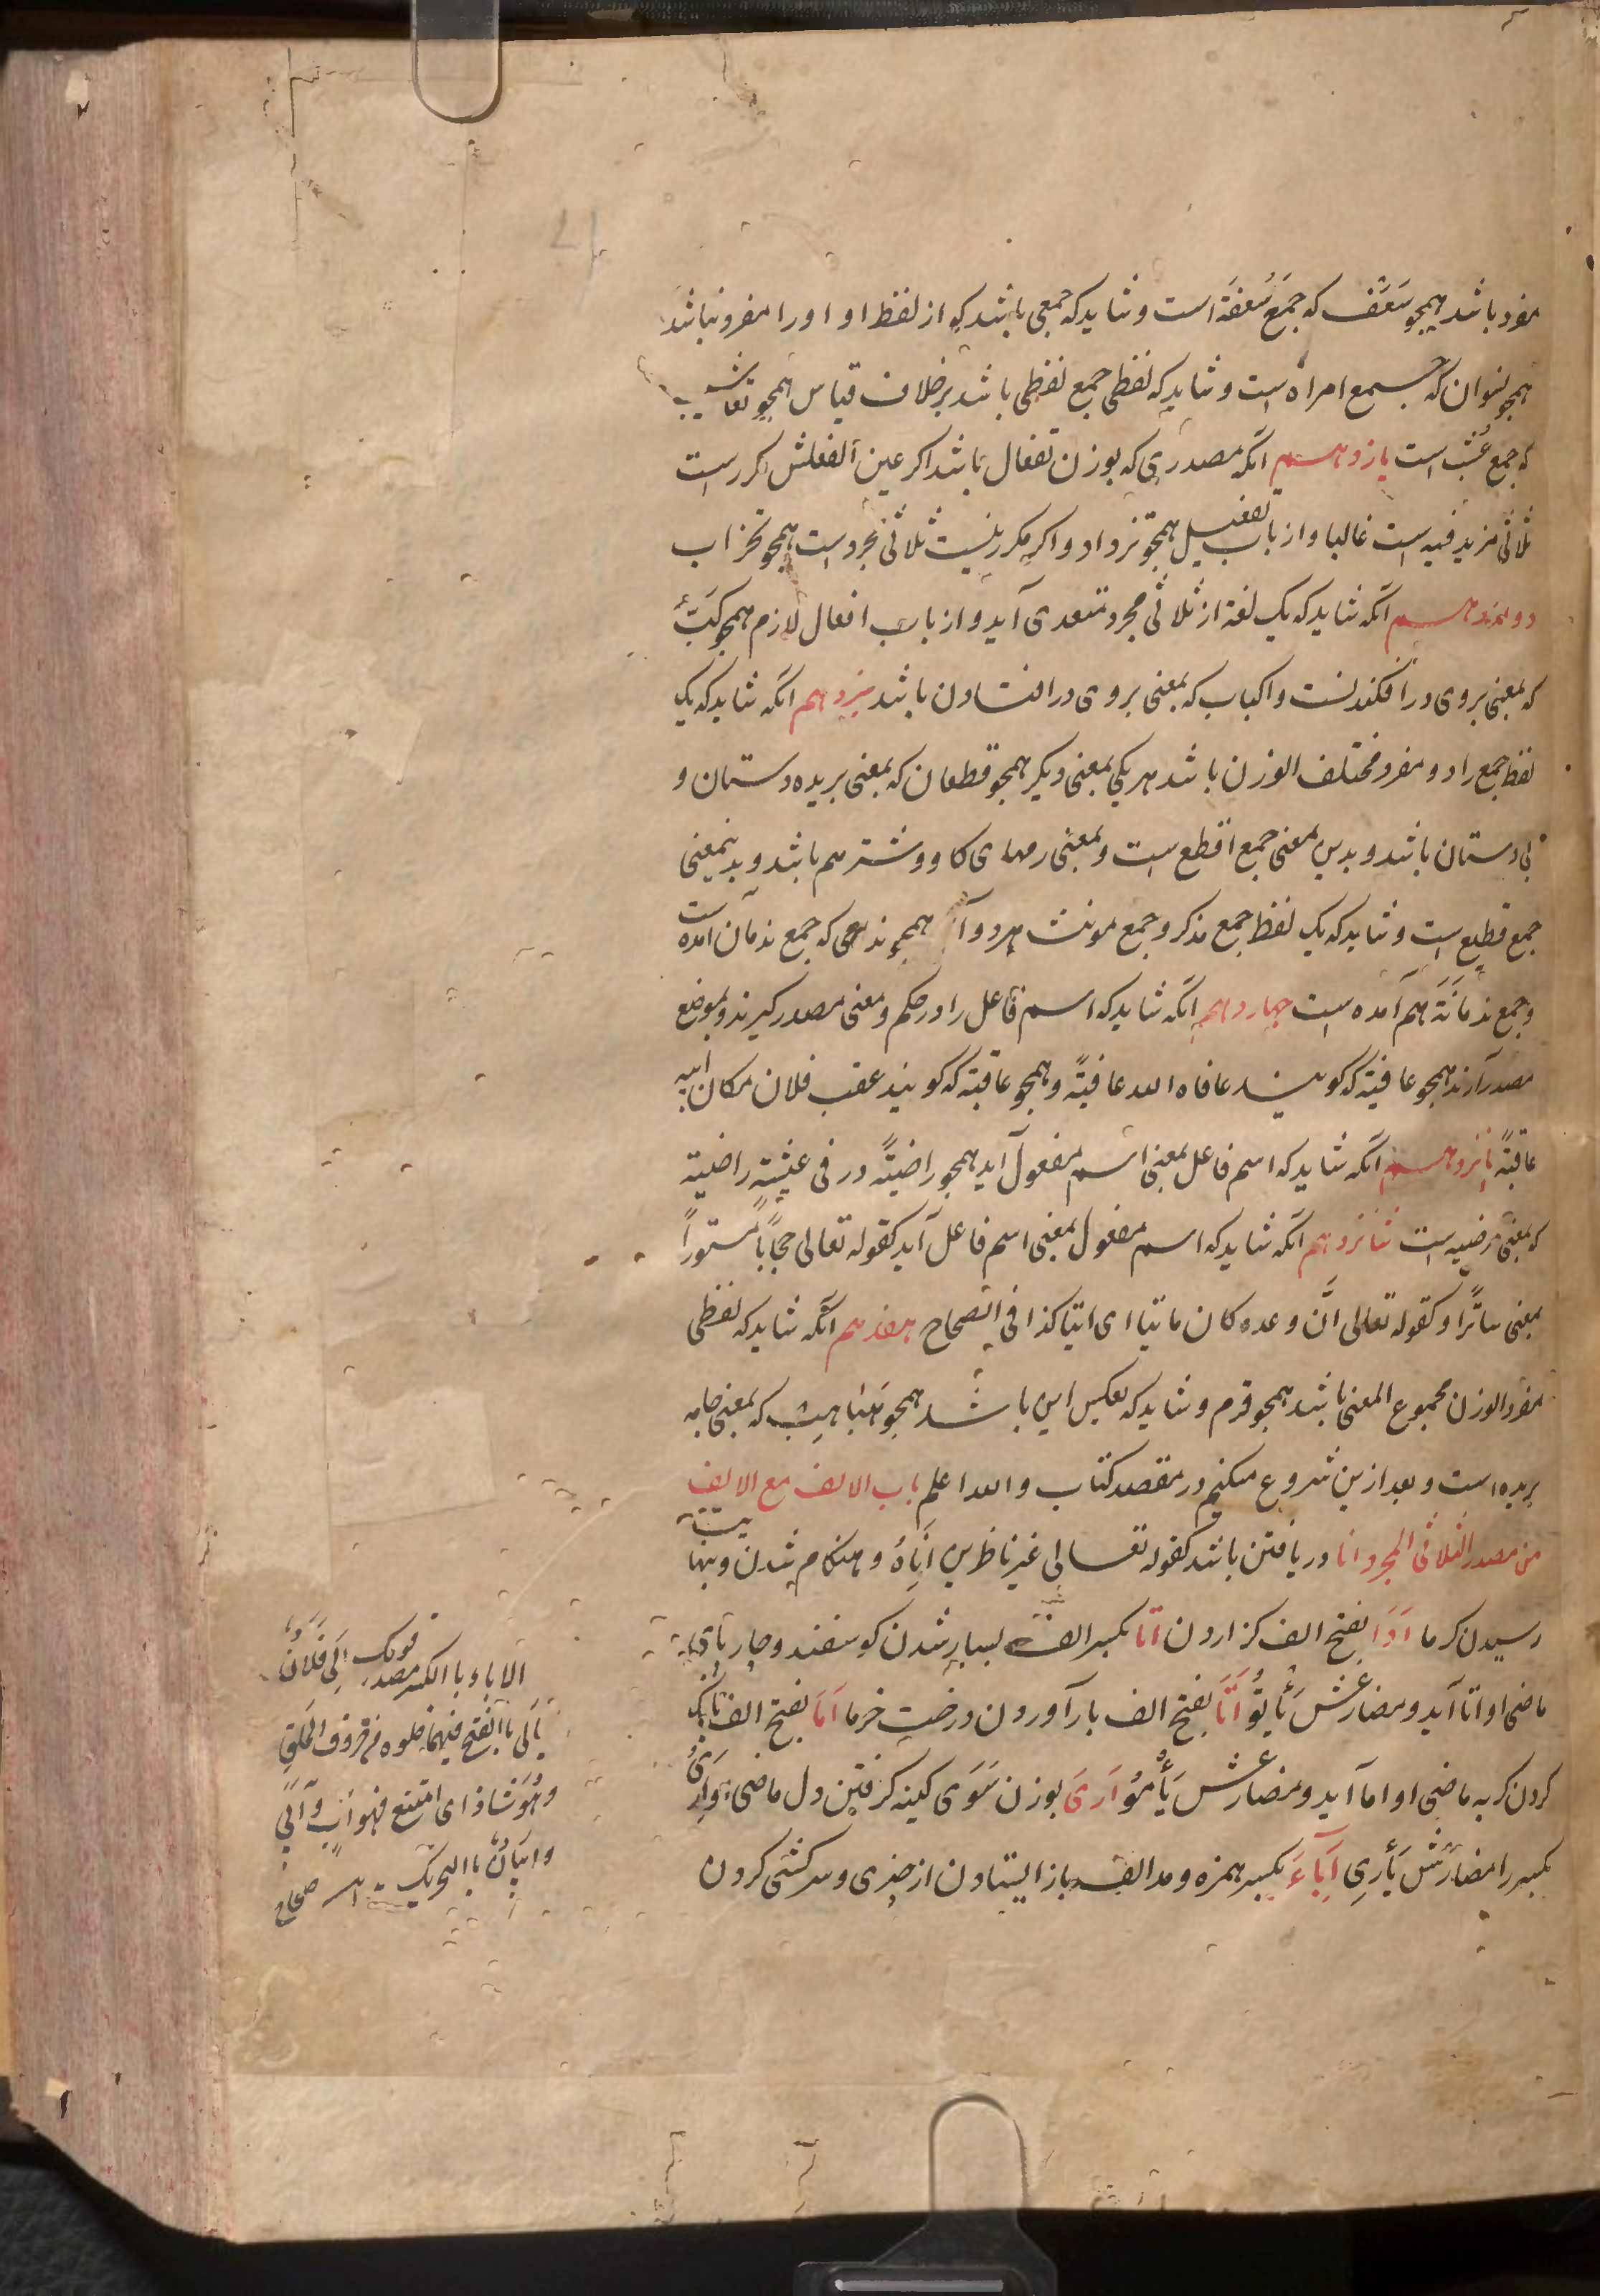 مفرد باشد همچو سَعَف که جمع سَعفَة است و شاید که جمعی باشد که از لفظ او او را مفرد نباشد
همچو نسوان که جمع امراه است و شاید که لفظی جمع لفظی باشد برخلاف قیاس همچو تعاشیب
که جمع عُشب است یازدهم آنکه مصدری که بوزن تفعال باشد اکر عین الفعلش مکرر است
ثلاثی مزید فیه است غالبا و از باب تفعیل همچو ترداد و اکر مکرر نیست ثلاثی مجرد است همچو تخراب
دوازدهم آنکه شاید که یک لغة از ثلاثی مجرد متعدی آید و از باب افعال لازم همچو کَبّ
که بمعنی بروی در افکندنست و اکباب که بمعنی بروی در افتادن باشد سیزدهم آنکه شاید که یک
لفظ جمع را دو مفرد مختلف الوزن باشد هر یکی بمعنی دیکر همچو قطعان که بمعنی بریده دستان و
بی دستان باشد و بدین معنی جمع اقطع است و بمعنی رمهای کاو و شتر هم باشد و بدینمعنی
جمع قطیع است و شاید که یک لفظ جمع مذکر و جمع مونث هر دو آید همچو ندامی که جمع ندمان آمده است
و جمع ندمانَة هم آمده است چهاردهم آنکه شاید که اسم فاعل را در حکم و معنی مصدر کیرند و بموضع
مصدر آرند همچو عافیة که کویند عافاه الله عافیةً و همچو عاقبة که کویند عقب فلان مکان ابیه
عاقبةً پانزدهم آنکه شاید که اسم فاعل بمعنی اسم مفعول آید همچو راضیةً در فی عیشةٍ راضیة
که بمعنی مرضیه است شانزدهم آنکه شاید که اسم مفعول بمعنی اسم فاعل آید کقوله تعالی حجاباً مستوراً
بمعنی ساترًا و کقوله تعالی انّ وعده کان ماتیا ای اتیا کذا فی الصحاح هفدهم آنکه شاید که لفظی
مفرد الوزن مجموع المعنی باشد همچو قرم و شاید که بعکس این باشد همچو هَبَاهِیب که بمعنی جامه
بریده است و بعد ازین شروع میکنیم در مقصد کتاب و الله اعلم باب الالف مع الالف
من مصدر الثلاثی المجرد انا دریافتن باشد کقوله تعالی غیر ناظرین اِنَاهُ و هنکام شدن و بنهایت
رسیدن کرما اَدَا بفتح الف کزاردن اتا بکسر الف بسیار شدن کوسفند و چارپای
ماضی او اتا آید و مضارعش یَأتُو اَتَا بفتح الف بار آوردن درخت خرما اَمَا بفتح الف بانک
کردن کربه ماضی او اما آید و مضارعش یَأمُو اَرَی بوزن سَوَی کینه کرفتن دل ماضی او اَرِیَ
بکسر را مضارعش یَأرِی اِبَاءَ بکسر همزه و مد الف باز ایستادن از چیزی و سرکشی کردن
الاباء با الکسر مصدر قولک اَبَی فلانٌ
یَأبَی با الفتح فیهما مع خلوه من حروف الحلق
وهُوَ شاذ ای امتنع فهو آبٍ و آبیٌ
و ابَیَانٌ با التحریک صحاح